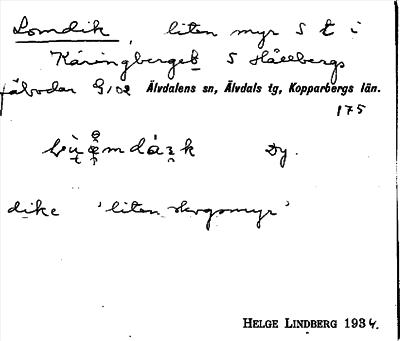 Lomdik, liten myr S t i
Käringberget S Hållbergs
fäbodar G, 02 Älvdalens sn, Älvdals tg, Kopparbergs län.
175
Dy.
dike 'liten skogsmyr'
HELGE LINDBERG 1934.